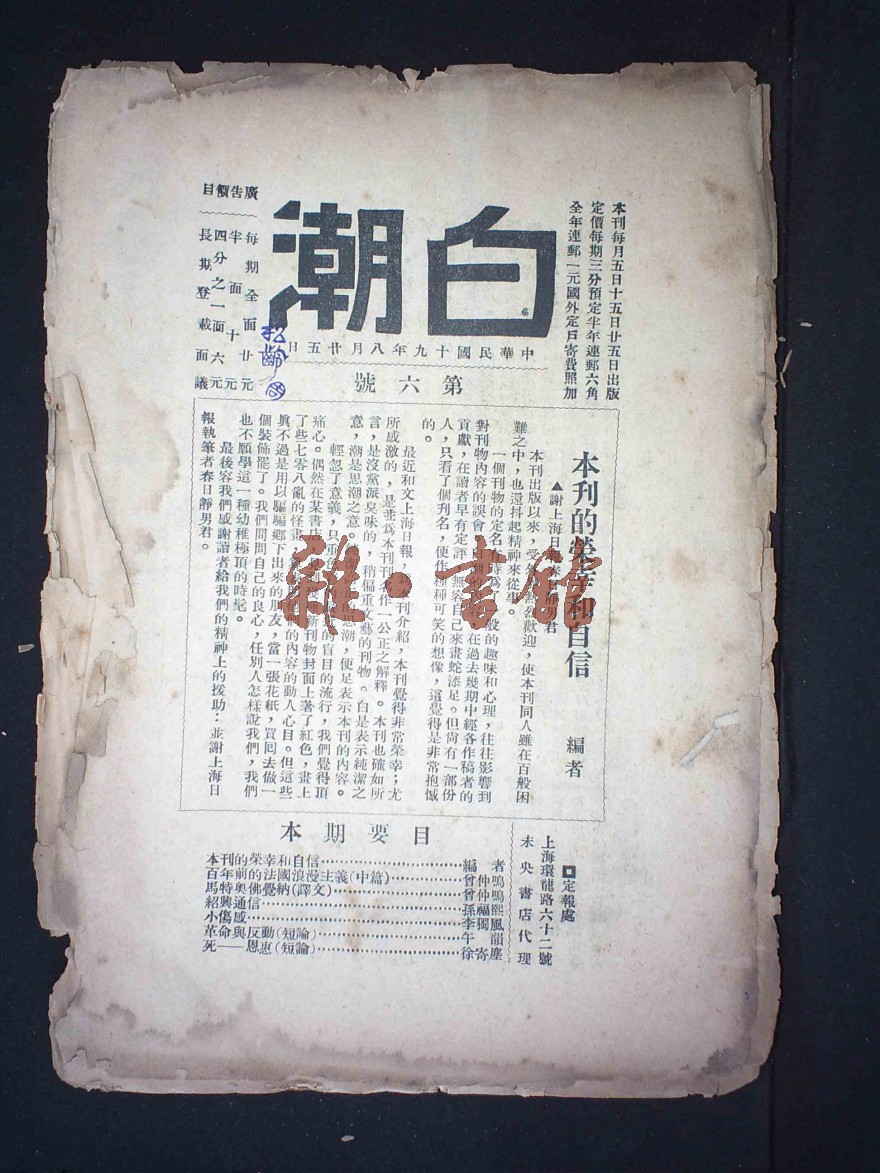 本刊每月五日十五日廿五日出版
定價每期三分預定半年連郵六角
全年連郵一元國外定戶寄費照加
白潮
中華民國十九年八月廿五日
第六號
廣告價目
每期全面廿元
半面十元
四分之一面六元
長期登載面議
松齡
本刊的榮幸和自信
編者
▲謝上海日報春日靜男君
本刊出版以來，受外界熱烈歡迎，使本刊同人雖在百般困
難之中，也還抖起精神來從事。
一個刊物的定名有時為了一般的趣味和心理，往往影響到
對刊物內容的誤會。白潮的在過去幾期中經各作稿者的
貢獻，在讀者早有定評，無容自己來畫蛇添足。但尚有一部份
人，只看了個刊名，便作種種可笑的想像，這覺得是非常抱憾
的。
最近和文上海日報，為本刊介紹，本刊覺得非常榮幸；尤
所感激的，是並爲本刊刊名作一公正之解釋。本刊也確如所
言，是沒黨派臭味的，稍偏重文藝的刊物。白是表示純潔之
意，潮是思潮之意。潮，便足表示本刊的內容。
輕忽了意義，只重色的盲目的流行，我們覺得頂
痛心。偶然在某書店新刊物封面上著了紅色，畫上
了些七零八亂的怪畫，的內容的動人心目。但這些
眞不過是用以騙騙鄉下出來的朋友，當一張花紙，買回去做一
個裝飾罷了。我們問問自己的良心，任別人怎樣說我們，我們
也不願學這一種幼稚極頂的時髦。
最後容我們感謝讀者給我們的精神上的援助；並謝上海日
報執筆者春日靜男君。
雜·書館
本期要目
本刊的榮幸和自信 編者
百年前的法國浪漫主義（中篇） 曾仲鳴
馬特奧佛覺納（譯文） 曾仲鳴
紹興通信 孫福熙
小傷感 李獨風
革命與反動（短論） 午韻
死——恩惠（短論） 徐寄塵
定報處
上海環龍路六十二號
未央書店代理